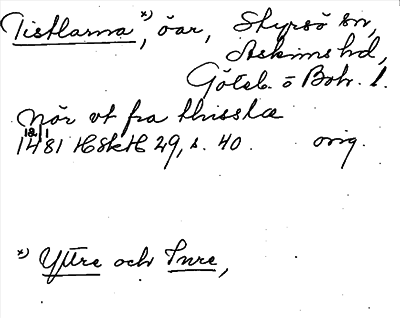 Tistlarna *), öar, Styrsö sn,
Askims hd,
Göteb. o Boh. l.
Nör vt fra thisslæ
18/1
1481 HSkH 29, s. 40. orig.
*) Yttre och Inre,